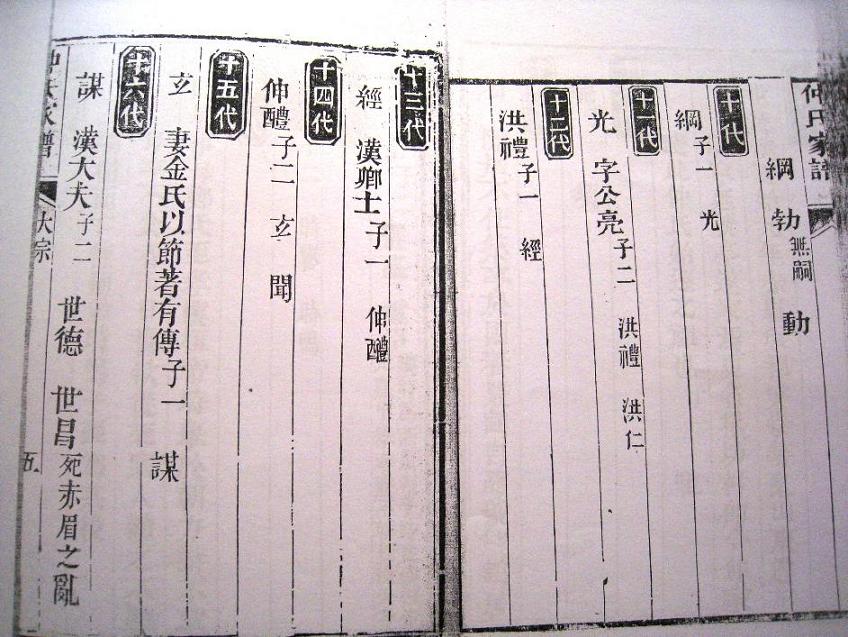 仲氏家譜
綱 勃無嗣 動
十代
綱子一 光
十一代
光 字公亮子二 洪禮 洪仁
十二代
洪禮子一 經
十三代
經 漢卿士子一 仲醴
十四代
仲醴子二 玄 聞
十五代
玄 妻金氏以節著有傳子一 謀
十六代
謀 漢大夫子二 世德 世昌死赤眉之亂
仲氏家譜 大宗 五